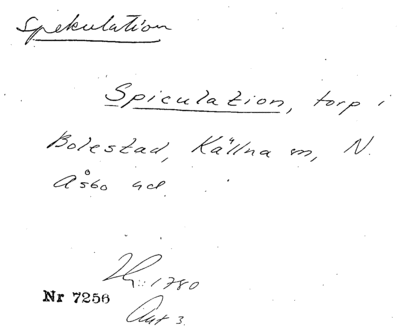 Spekulation
Spiculation, torp i
Bolestad, Källna sn, N.
Åsbo hd.
Hr: 1780
Nr 7256
Ant 3.